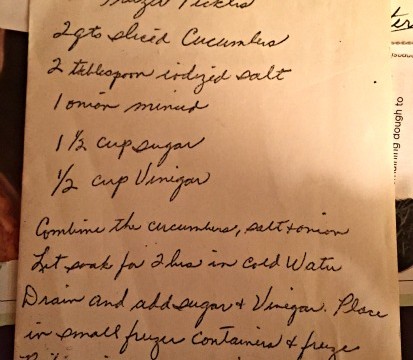 Frezer Pickles
2 qts sliced Cucumbers
2 tablespoon iodized salt
1 onion minced
1 1/2 cup sugar
1/2 cup Vinigar
Combine the cucumbers, salt + onion
Let soak for 2 hrs in cold Water
Drain and add sugar + Vinegar. Place
in small freezer containers + freeze
ning dough to